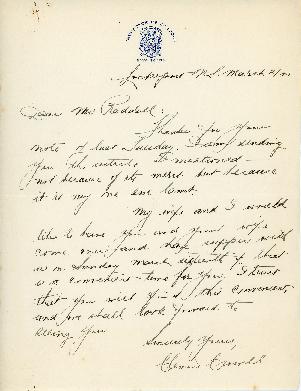 Lockeport N.S. March 2/
Dear Mr. Raddall:
Thanks for your
note of last Tuesday. I am sending
you the article I mentioned —
not because of its merit but because
it is my one
My wife and I would
like to have you and your wife
come over and have supper with
us on Sunday March if that
is a convenient time for you. I trust
that you will find this convenient,
and we shall look forward to
seeing you.
Sincerely yours,